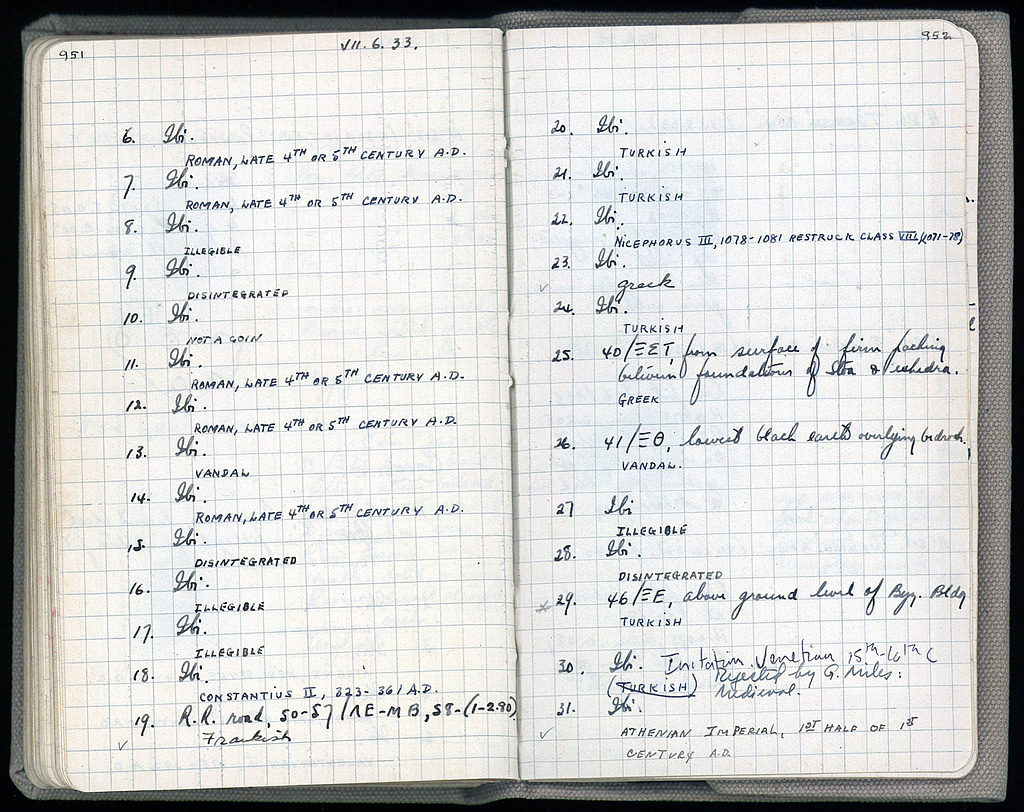 951
VII. 6. 33.
6. Ibi.
ROMAN, LATE 4TH OR 5TH CENTURY A.D.
7. Ibi.
ROMAN, LATE 4TH OR 5TH CENTURY A.D.
8. Ibi.
ILLEGIBLE
9. Ibi.
DISINTEGRATED
10. Ibi.
NOT A COIN
11. Ibi.
ROMAN, LATE 4TH OR 5TH CENTURY A.D.
12. Ibi.
ROMAN, LATE 4TH OR 5TH CENTURY A.D.
13. Ibi.
VANDAL
14. Ibi.
ROMAN, LATE 4TH OR 5TH CENTURY A.D.
15. Ibi.
DISINTEGRATED
16. Ibi.
ILLEGIBLE
17. Ibi.
ILLEGIBLE
18. Ibi.
CONSTANTIUS II, 323-361 A.D.
19. R.R. road, 50-57/ΛE-MB, 58-(1-2.80)
Frankish
952
20. Ibi.
TURKISH
21. Ibi.
TURKISH
22. Ibi.
NICEPHORUS III, 1078-1081 RESTRUCK CLASS VIII (1071-78)
23. Ibi.
greek
24. Ibi.
TURKISH
25. 40/ΞΣT, from surface of firm packing
between foundations of Stoa & exhedra.
GREEK
26. 41/ΞΘ, lowest black earth overlying bedrock.
VANDAL.
27 Ibi
ILLEGIBLE
28. Ibi.
DISINTEGRATED
29. 46/ΞE, above ground level of Byz. Bldg
TURKISH
30. Ibi. Imitation Venetian 15th-16th C
(TURKISH) Rejected by G. Miles:
Medieval.
31. Ibi.
ATHENIAN IMPERIAL, 1ST HALF OF 1ST
CENTURY A.D.